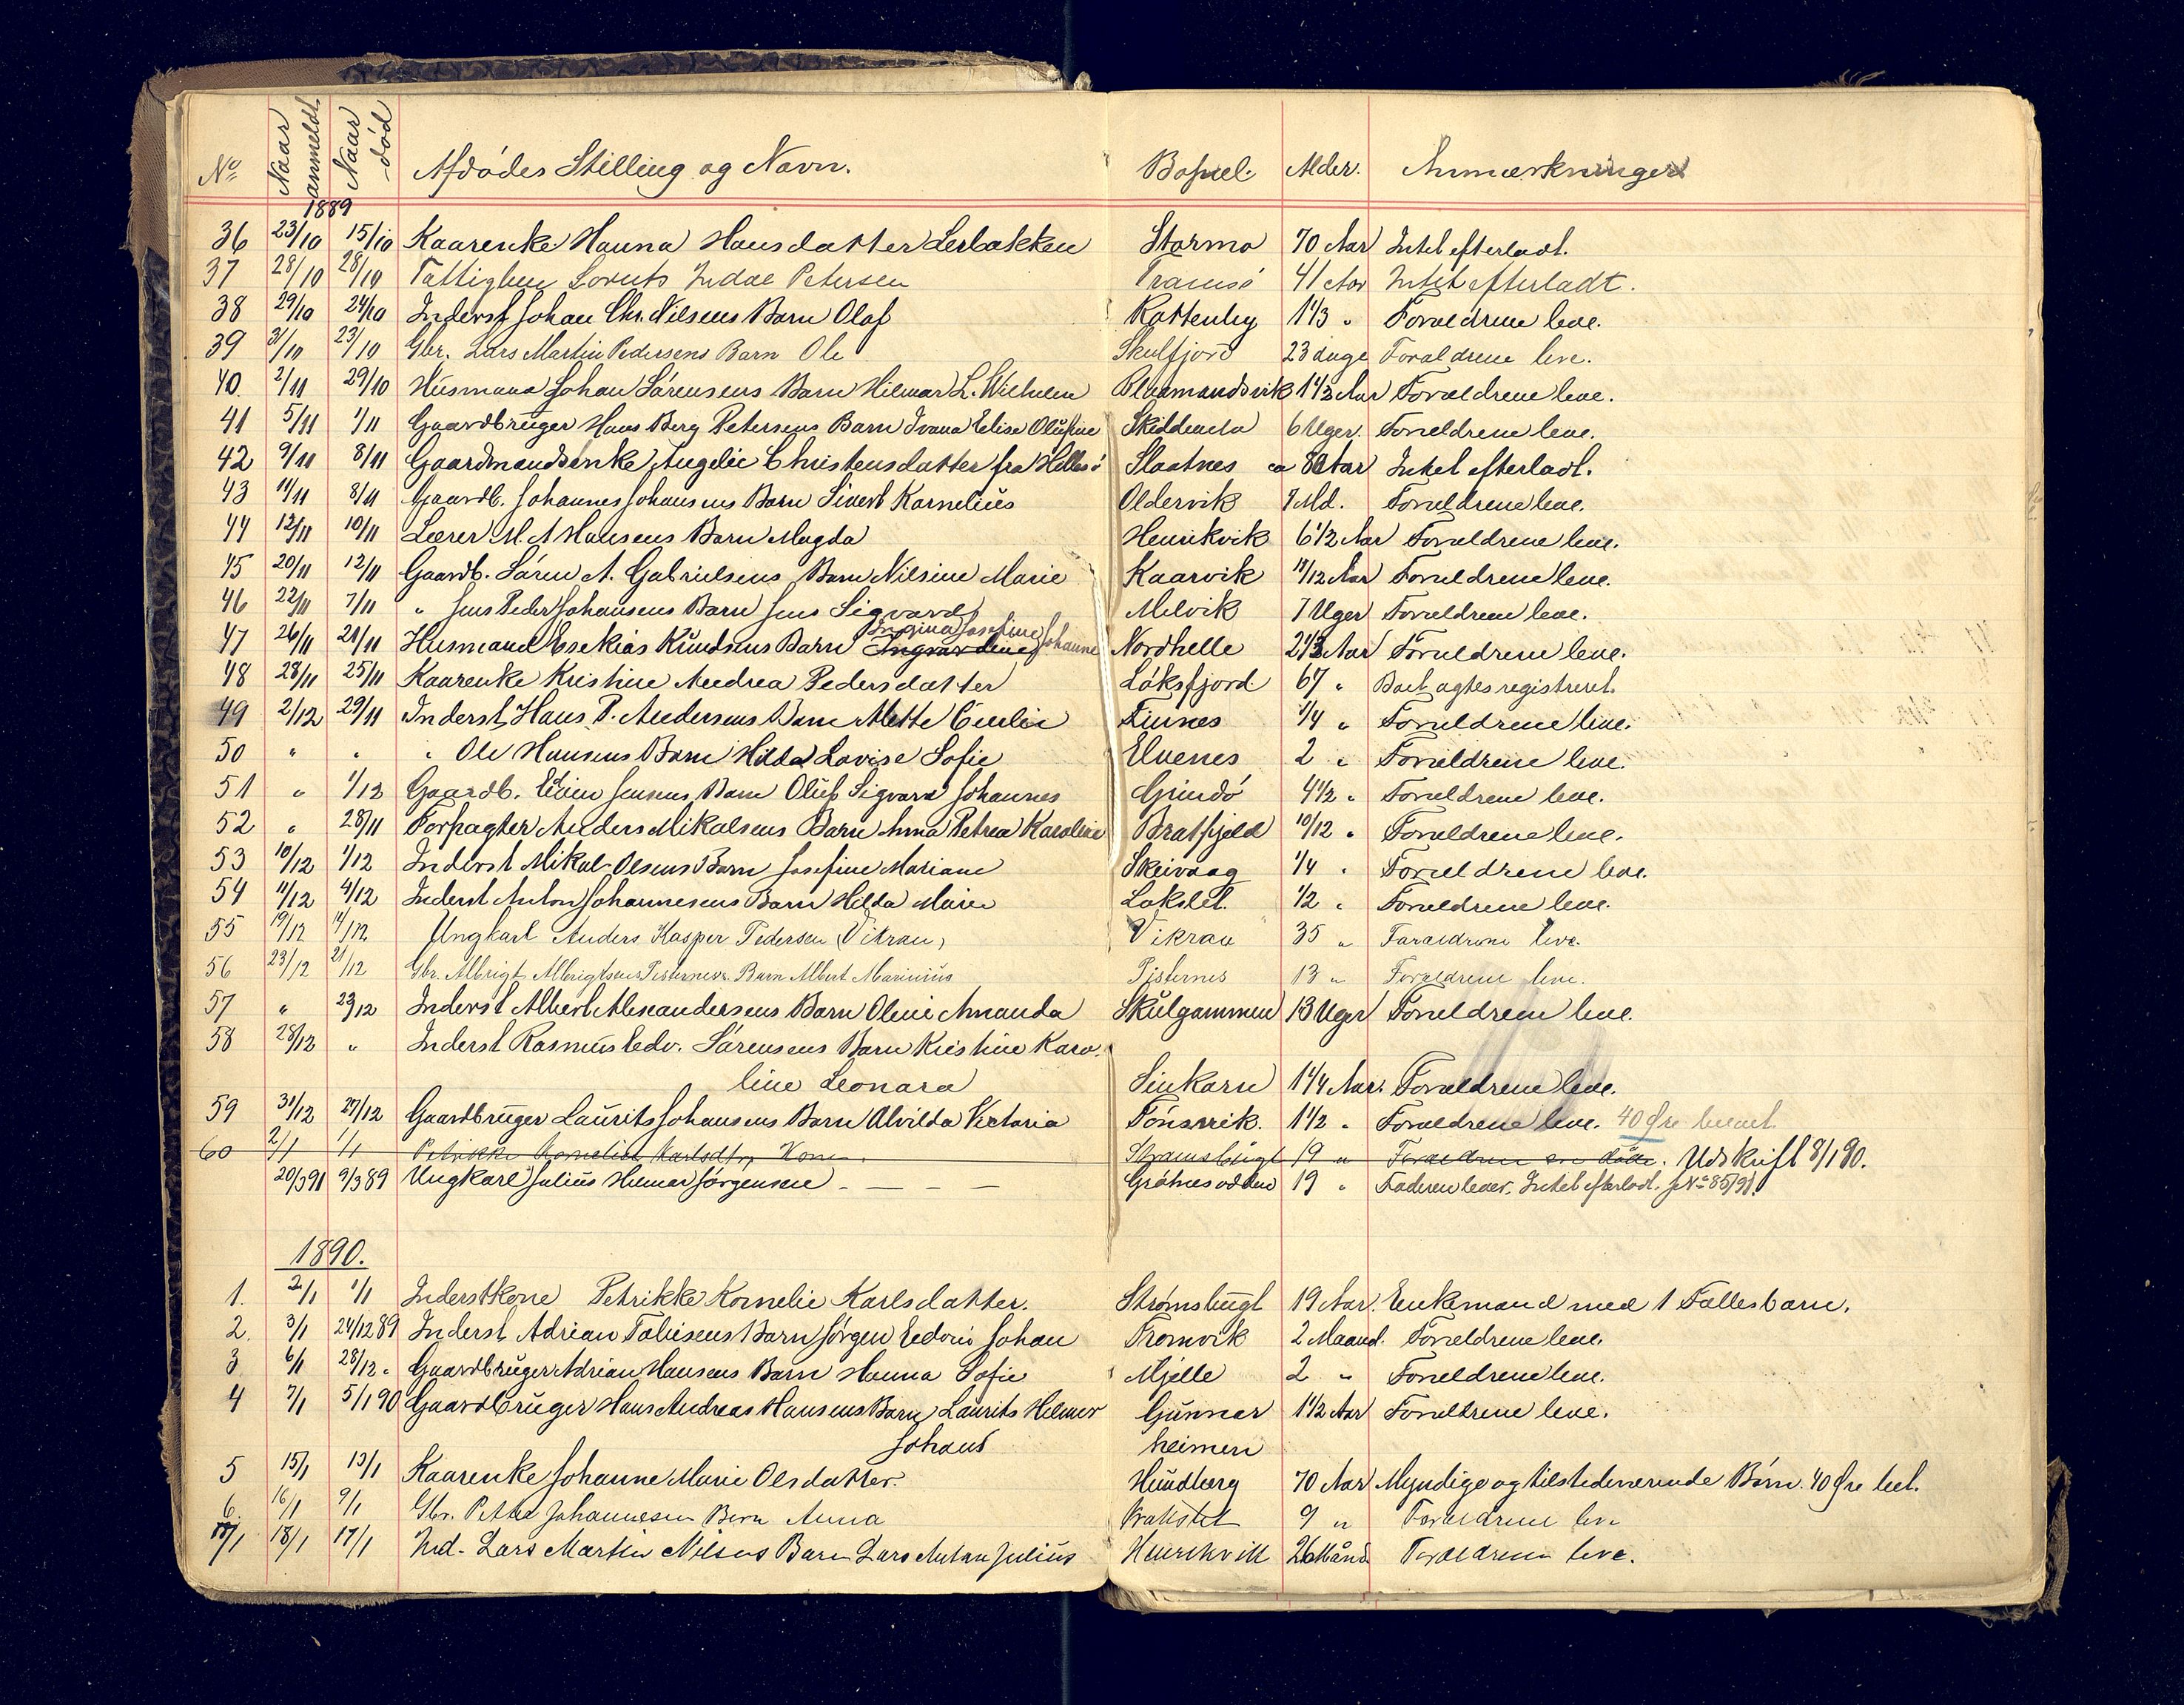 No Naar anmeldt Naar død Afdödes Stilling og Navn. Bopæl. Alder. Anmærkninger
1889
36 23/10 15/10 Kaarenke Hanna Hansdatter Lerbakken Stormo 70 Aar Intet efterladt.
37 28/10 28/10 Fattiglem Lorents Indal Petersen Tromsö 41 Aar Intet efterladt.
38 29/10 24/10 Inderst Johan Chr. Nilsens Barn Olaf Kattenby 1 1/3 " Forældrene leve.
39 31/10 23/10 Gbr. Lars Martin Pedersens Barn Ole Skulfjord 23 dage Forældrene leve.
40. 2/11 29/10 Husmand Johan Sörensens Barn Hilmar L. Wilhelm Blaamandsvik 1 1/3 Aar Forældrene leve.
41 5/11 1/11 Gaardbruger Hans Berg Petersens Barn Ivana Elise Olufine 6 Uger. Forældrene leve.
42 9/11 8/11 Gaardmandsenke Angelic Christensdatter fra Hillesö Slaatnes ca 80 Aar Intet efterladt.
43 11/11 8/11 Gaardb. Johannes Johansens Barn Sivert Kornelius Oldervik 7 Md. Forældrene leve.
44 12/11 10/11 Lærer M. A Hansens Barn Magda Henrikvik 6 1/2 Aar Forældrene leve.
45 20/11 12/11 Gaardb. Sören A. Gabrielsens Barn Nilsine Marie Kaarvik 11/12 Aar Forældrene leve.
46 22/11 7/11 " Jens Peder Johansens Barn Jens Sigvard Melvik 7 Uger Forældrene leve.
Ingrina Josefine Johanne
47 26/11 21/11 Husmand Esekias Knudsens Barn Ingvardine Nordhelle 2 1/2 Aar Forældrene leve.
48 28/11 25/11 Kaarenke Kristine Andrea Pedersdatter Löksfjord 67 " Boet agtes registreret.
49 2/12 29/11 Inderst Hans P. Andersens Barn Mette Emilie Finnes 1/4 " Forældrene leve.
50 " " " Ole Hansens Barn Hilda Lovise Sofie Elvenes 2 " Forældrene leve.
51 " 1/12 Gaardb. Edvin Jensens Barn Oluf Sigvard Johannes Grindö 4 1/2 " Forældrene leve.
52 " 28/11 Forpagter Anders Mikalsens Barn Anna Petrea Karoline Bratfjeld 10/12 " Forældrene leve.
53 10/12 1/12 Inderst Mikal Olsens Barn Josefine Mariane Skeivaag 1/4 " Forældrene leve.
54 11/12 4/12 Inderst Anton Johannesens Barn Hilda Marie Lokslet. 1/2 " Forældrene leve.
55 19/12 14/12 Ungkarl Anders Kasper Pedersen (Vikran) Vikran 35 " Forældrene leve.
56 23/12 21/12 Gbr. Albrigt Albrigtsens Barn Albert Marinius Pisternes 13 " Forældrene leve.
57 " 23/12 Inderst Albert Alexandersens Barn Oline Amanda Skulgammen 13 Uger Forældrene leve.
58 28/12 " Inderst Rasmus Edv. Sörensens Barn Kristine Karo-
line Leonara Sinkarn 1 1/4 Aar. Forældrene leve.
59 31/12 27/12 Gaardbruger Laurits Johansens Barn Alvilda Victoria Tönsvik. 1 1/2 " Forældrene leve. 40 Øre betalt
60 2/1 1/1 Petrikke Kornelie Karlsdtr, Kone Strømsbugt 19 " Forældrene er döde. Udskrift 8/1 90.
20/3 91 9/3 89 Ungkarl Julius Hilmar Jörgensen - - - - Grötnesodden 19 " Faderen lever. Intet efterladt. J No 85/91.
1890.
1. 2/1 1/1 Inderstkone Petrikke Kornelie Karlsdatter. Strømsbugt 19 Aar. Enkemand med 1 Fællesbarn.
2. 3/1 24/12 89 Inderst Adrian Tobiesens Barn Jörgen Edvin Johan Tromvik 2 Maand. Forældrene leve.
3 6/1 28/12 " Gaardbruger Adrian Hansens Barn Hanna Sofie Mjelle 2 " Forældrene leve.
4 7/1 5/1 90 Gaardbruger Hans Andreas Hansens Barn Laurits Helmer Gunnar 1 1/2 Aar Forældrene leve.
Johans heimen
5 15/1 13/1 Kaarenke Johanne Marie Olsdatter. Hundberg 70 Aar Myndige og tilstedeværende Börn. 40 Øre bet.
6. 16/1 9/1 Gbr. Petter Johannesen Barn Anna Brakstet 9 " Forældrene leve
18/1 17/1 Ind. Lars Martin Nilsens Barn Lars Anton Julius Henrikvik 26 Månd Forældrene leve.